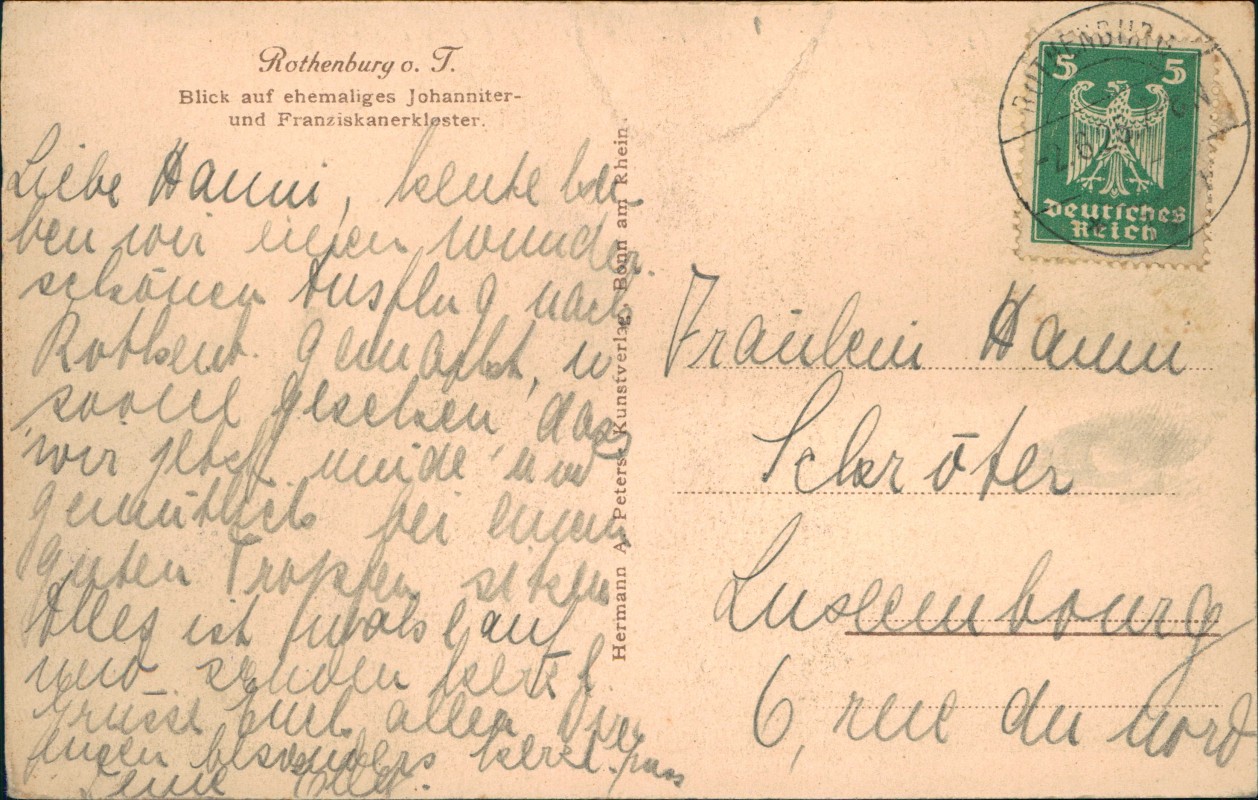 Rothenburg o. T.
Blick auf ehemaliges Johanniter-
und Franziskanerkloster.
Liebe Hanni, heute ha-
ben wir einen wunder-
schönen Ausflug nach
Rothenb. gemacht, u
soviel gesehen dass
wir jetzt müde und
gemütlich bei einem
guten Tropfen sitzen
Alles ist
und senden herzl.
Grüsse Euch allen
besonders herzl.
Hermann A. Peters, Kunstverlag, Bonn am Rhein.
ROTHENBURG
2.6.
5 5
Deutsches
Reich
Fräulein Hanni
Schröter
Luxembourg
6, rue du nord